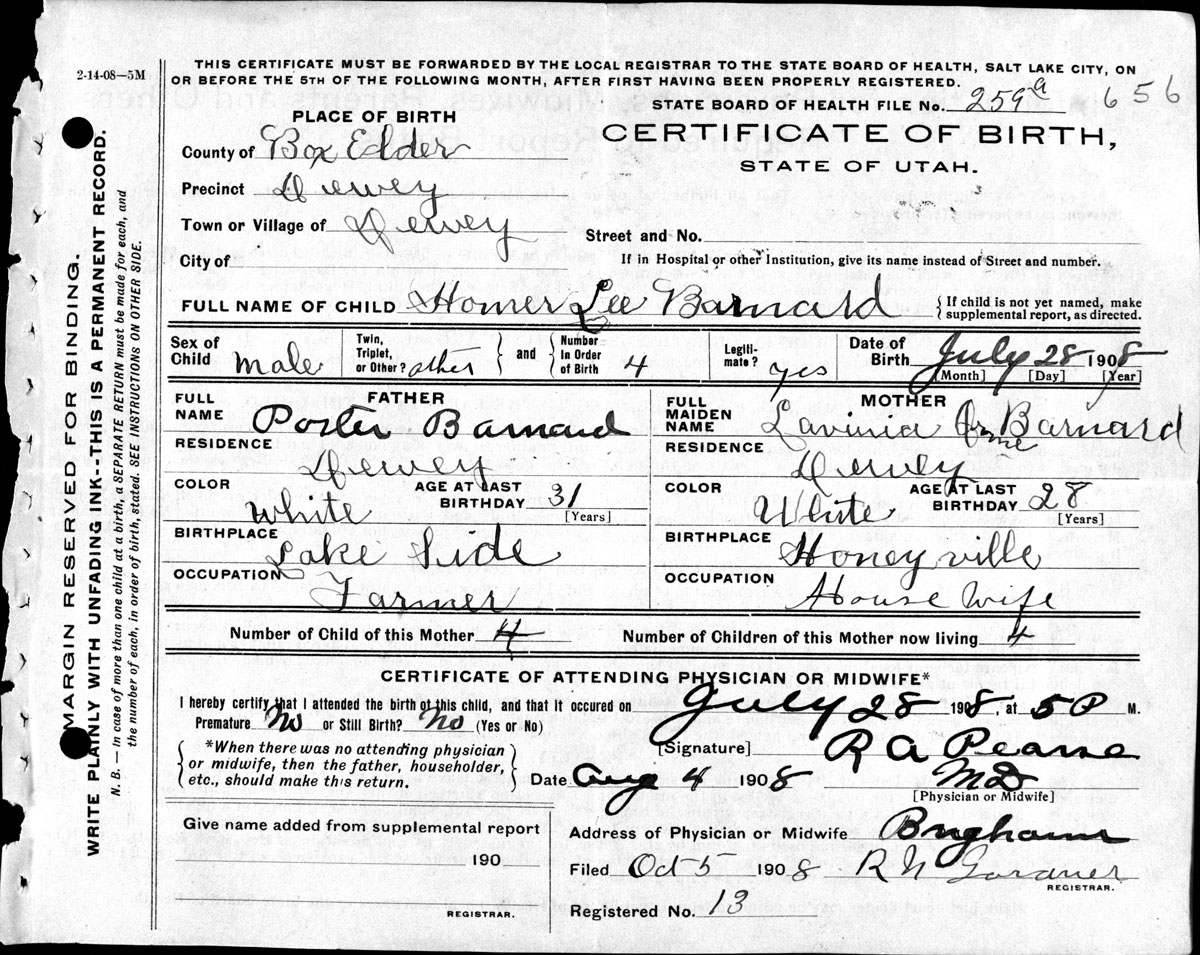 2-14-08—5M
THIS CERTIFICATE MUST BE FORWARDED BY THE LOCAL REGISTRAR TO THE STATE BOARD OF HEALTH, SALT LAKE CITY, ON
OR BEFORE THE 5TH OF THE FOLLOWING MONTH, AFTER FIRST HAVING BEEN PROPERLY REGISTERED.
STATE BOARD OF HEALTH FILE No. 259a 656
PLACE OF BIRTH
CERTIFICATE OF BIRTH,
STATE OF UTAH.
County of Box Elder
Precinct Dewey
Town or Village of Dewey
Street and No.
City of
If in Hospital or other Institution, give its name instead of Street and number.
FULL NAME OF CHILD Homer Lee Barnard { If child is not yet named, make supplemental report, as directed.
Sex of Child Male Twin, Triplet, or Other? other } and { Number In Order of Birth 4 Legiti-mate? yes Date of Birth July 28 1908
[Month] [Day] [Year]
FATHER
FULL NAME Porter Barnard
RESIDENCE Dewey
COLOR White AGE AT LAST BIRTHDAY 31
[Years]
BIRTHPLACE Lake Side
OCCUPATION Farmer
MOTHER
FULL MAIDEN NAME Lavinia Orme Barnard
RESIDENCE Dewey
COLOR White AGE AT LAST BIRTHDAY 28
[Years]
BIRTHPLACE Honeyville
OCCUPATION House Wife
Number of Child of this Mother 4 Number of Children of this Mother now living 4
CERTIFICATE OF ATTENDING PHYSICIAN OR MIDWIFE*
I hereby certify that I attended the birth of this child, and that it occured on July 28 1908, at 5 P M.
Premature No or Still Birth? No (Yes or No)
{ *When there was no attending physician
or midwife, then the father, householder,
etc., should make this return. }
[Signature] R A Pearse
Date Aug 4 1908 MD
[Physician or Midwife]
Give name added from supplemental report
190
REGISTRAR.
Address of Physician or Midwife Brigham
Filed Oct 5 1908 R N Gardner
REGISTRAR.
Registered No. 13
MARGIN RESERVED FOR BINDING.
WRITE PLAINLY WITH UNFADING INK--THIS IS A PERMANENT RECORD.
N. B. — In case of more than one child at a birth, a SEPARATE RETURN must be made for each, and
the number of each, in order of birth, stated. SEE INSTRUCTIONS ON OTHER SIDE.